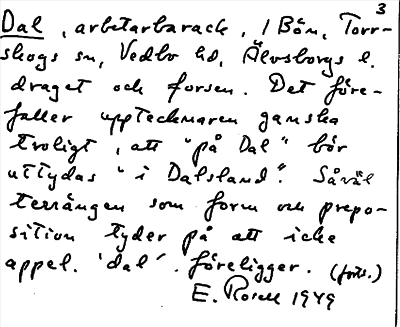 3
Dal, arbetarbarack, i Bön, Torr-
skogs sn, Vedbo hd, Älvsborgs l.
draget och forsen. Det före-
faller upptecknaren ganska
troligt, att "på Dal" bör
uttydas "i Dalsland". Såväl
terrängen som form och prepo-
sition tyder på att icke
appel. 'dal'. föreligger. (forts.)
E. Rosell 1949